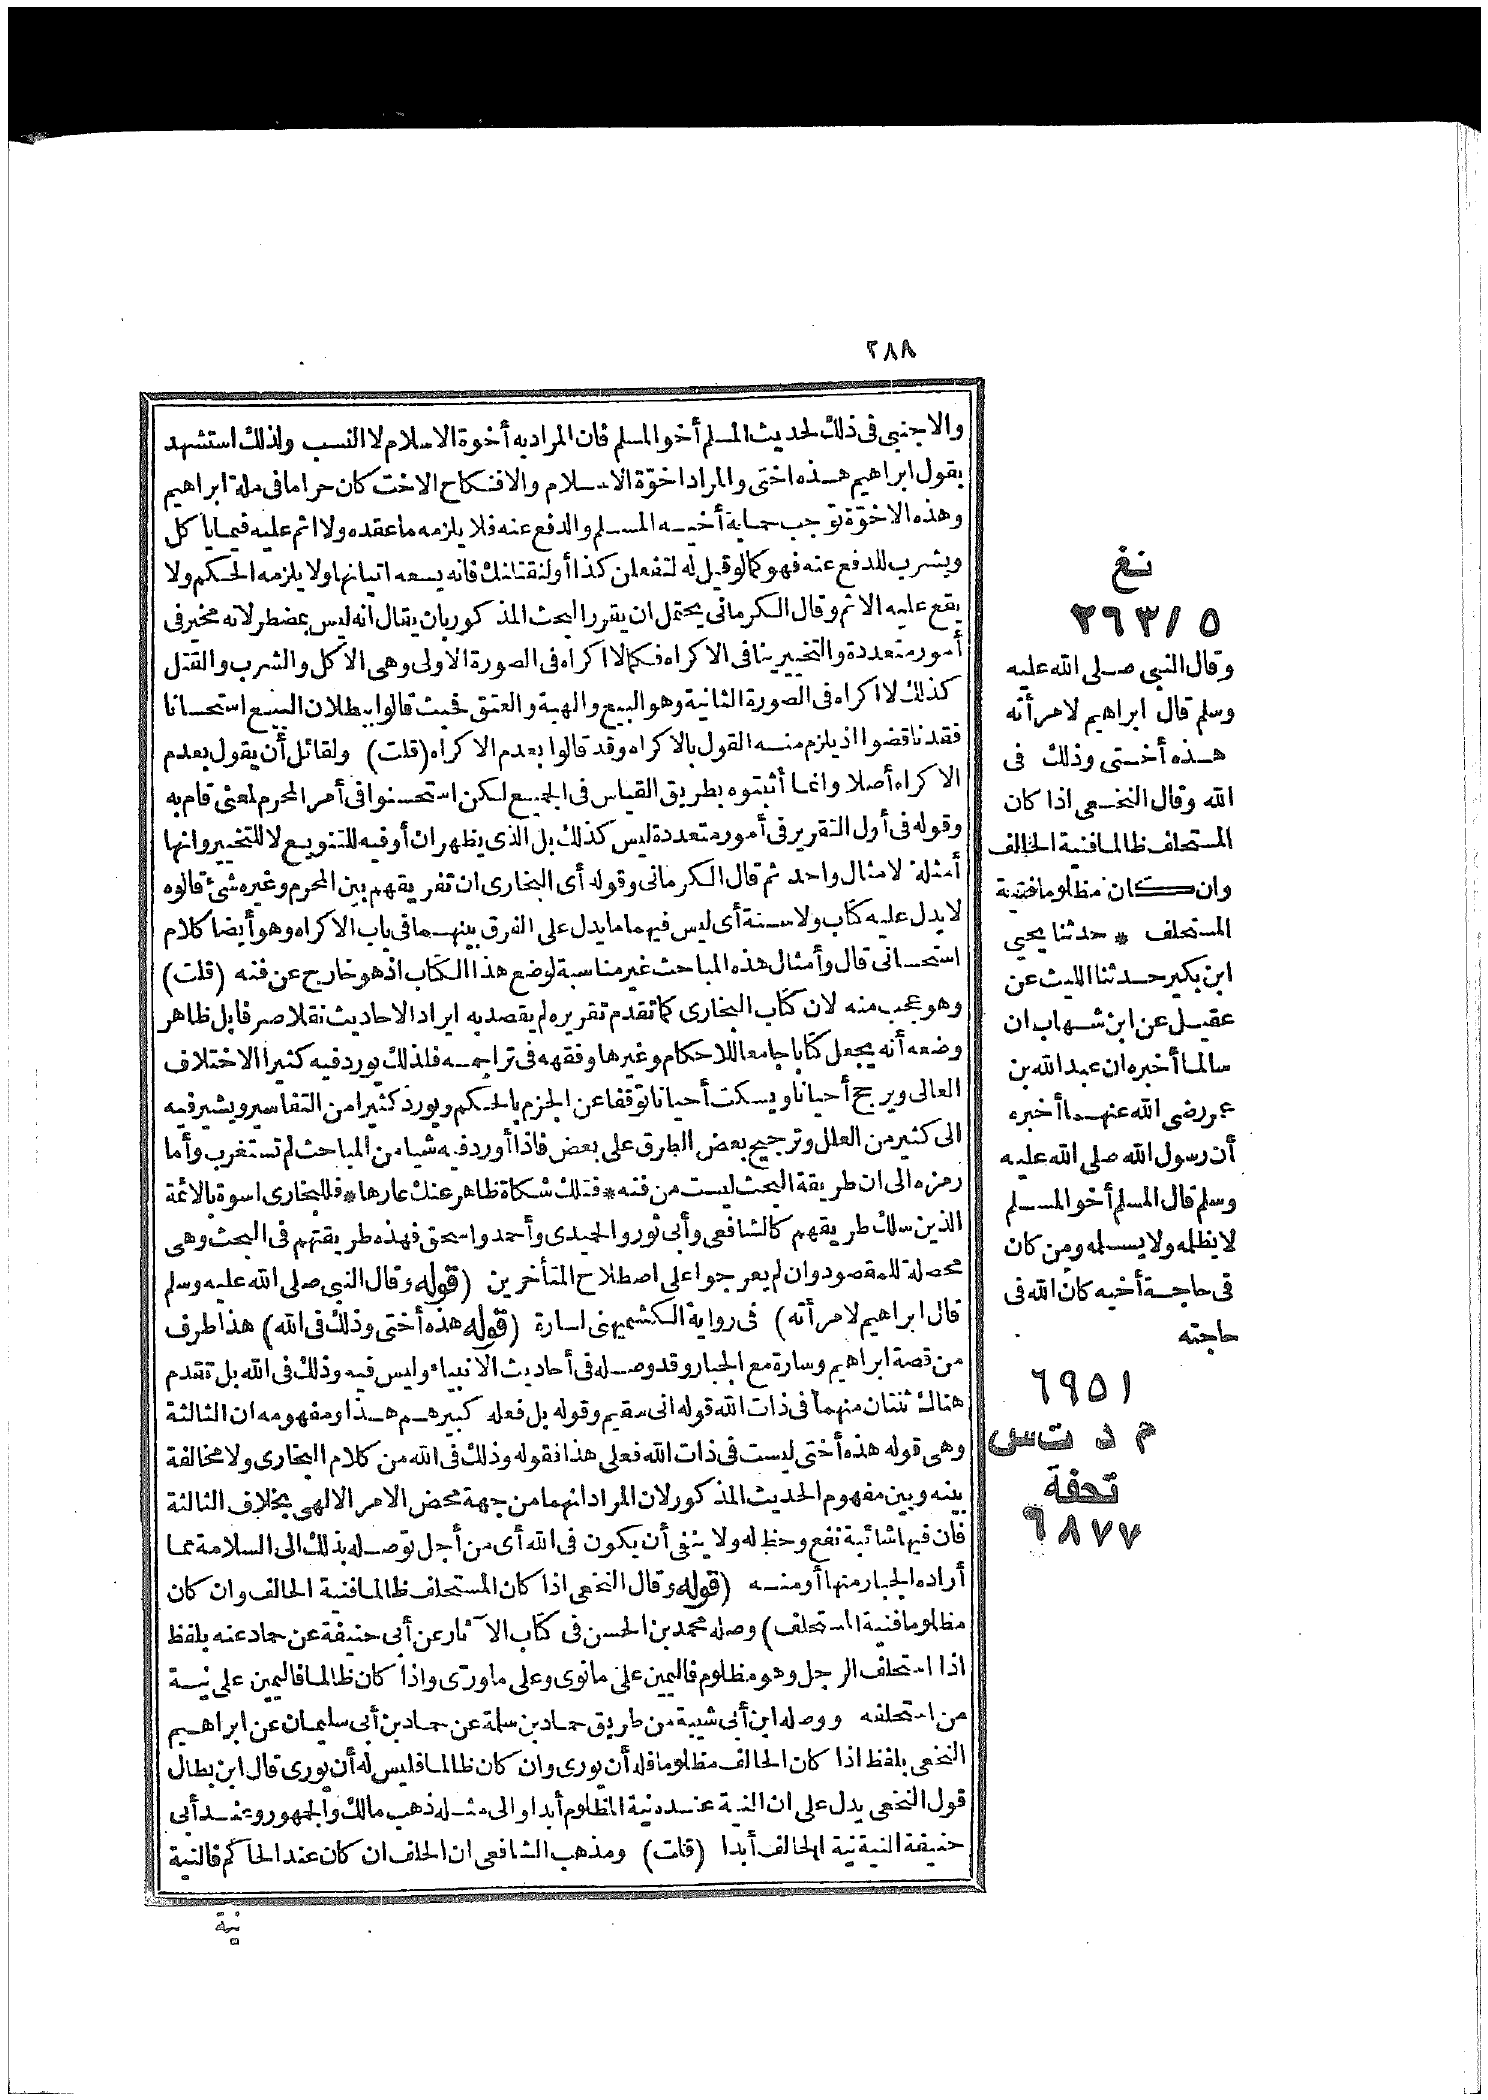 ٢٨٨
والاجنبي فى ذلك لحديث المسلم أخو المسلم فان المراد به أخوة الاسلام لا النسب ولذلك استشهد
بقول ابراهيم هذه اختى والمراد اخوّة الاسلام والا فنكاح الاخت كان حراما فى ملة ابراهيم
وهذه الاخوّة توجب حماية أخيه المسلم والدفع عنه فلا يلزمه ما عقده ولا اثم عليه فيما يأكل
ويشرب للدفع عنه فهو كما لو قيل له لتفعلن كذا أو لنقتلنك فانه يسعه اتيانها ولا يلزمه الحكم ولا
يقع عليه الاثم وقال الكرمانى يحتمل ان يقرر البحث المذكور بان يقال انه ليس بمضطر لانه مخير فى
أمور متعددة والتخيير ينافى الاكراه فكما لا اكراه فى الصورة الاولى وهى الاكل والشرب والقتل
كذلك لا اكراه فى الصورة الثانية وهو البيع والهبة والعتق فحيث قالوا ببطلان البيع استحسانا
فقد ناقضوا اذ يلزم منه القول بالاكراه وقد قالوا بعدم الاكراه (قلت) ولقائل أن يقول بعدم
الاكراه أصلا وانما أثبتوه بطريق القياس فى الجميع لكن استحسنوا فى أمر المحرم لمعنى قام به
وقوله فى أول التقرير فى أمور متعددة ليس كذلك بل الذى يظهر ان أو فيه للتنويع لا للتخيير وانها
أمثلة لا مثال واحد ثم قال الكرمانى وقوله أى البخارى ان تفريقهم بين المحرم وغيره شئ قالوه
لا يدل عليه كتاب ولا سنة أى ليس فيهما ما يدل على الفرق بينهما فى باب الاكراه وهو أيضا كلام
استحسانى قال وأمثال هذه المباحث غير مناسبة لوضع هذا الكتاب اذ هو خارج عن فنه (قلت)
وهو عجب منه لان كتاب البخارى كما تقدم تقريره لم يقصد به ايراد الاحاديث نقلا صرفا بل ظاهر
وضعه أنه يجعل كتابا جامعا للاحكام وغيرها وفقهه فى تراجمه فلذلك يورد فيه كثيرا الاختلاف
العالى ويرجح أحيانا ويسكت أحيانا توقفا عن الجزم بالحكم ويورد كثيرا من التفاسير ويشير فيه
الى كثير من العلل وترجيح بعض الطرق على بعض فاذا أورد فيه شيا من المباحث لم تستغرب وأما
رمزه الى ان طريقة البحث ليست من فنه * فتلك شكاة ظاهر عنك عارها * فللبخارى اسوة بالائمة
الذين سلك طريقهم كالشافعى وأبى ثور والحميدى وأحمد واسحق فهذه طريقتهم فى البحث وهى
محصلة للمقصود وان لم يعرجوا على اصطلاح المتأخرين (قوله وقال النبى صلى الله عليه وسلم
قال ابراهيم لامرأته) فى رواية الكشميهنى لسارة (قوله هذه أختى وذلك فى الله) هذا طرف
من قصة ابراهيم وسارة مع الجبار وقد وصله فى أحاديث الانبياء وليس فيه وذلك فى الله بل تقدم
هناك ثنتان منهما فى ذات الله قوله انى سقيم وقوله بل فعله كبيرهم هذا ومفهومه ان الثالثة
وهى قوله هذه أختى ليست فى ذات الله فعلى هذا فقوله وذلك فى الله من كلام البخارى ولا مخالفة
بينه وبين مفهوم الحديث المذكور لان المراد انهما من جهة محض الامر الالهى بخلاف الثالثة
فان فيها شائبة نفع وحظ له ولا ينفى أن يكون فى الله أى من أجل توصله بذلك الى السلامة مما
أراده الجبار منها أو منه (قوله وقال النخعى اذا كان المستحلف ظالما فنية الحالف وان كان
مظلوما فنية المستحلف) وصله محمد بن الحسن فى كتاب الآثار عن أبى حنيفة عن حماد عنه بلفظ
اذا استحلف الرجل وهو مظلوم فاليمين على ما نوى وعلى ما ورّى واذا كان ظالما فاليمين على نية
من استحلفه ووصله ابن أبى شيبة من طريق حماد بن سلمة عن حماد بن أبى سليمان عن ابراهيم
النخعى بلفظ اذا كان الحالف مظلوما فله أن يورى وان كان ظالما فليس له أن يورى قال ابن بطال
قول النخعى يدل على ان النية عنده نية المظلوم أبدا والى مثله ذهب مالك والجمهور وعند أبى
حنيفة النية نية الحالف أبدا (قلت) ومذهب الشافعى ان الحلف ان كان عند الحاكم فالنية
نية
تغ
٢٦٣/٥
وقال النبى صلى الله عليه
وسلم قال ابراهيم لامرأته
هذه أختى وذلك فى
الله وقال النخعى اذا كان
المستحلف ظالما فنية الحالف
وان كان مظلوما فنية
المستحلف * حدثنا يحيى
ابن بكير حدثنا الليث عن
عقيل عن ابن شهاب ان
سالما أخبره ان عبد الله بن
عمر رضى الله عنهما أخبره
أن رسول الله صلى الله عليه
وسلم قال المسلم أخو المسلم
لا يظلمه ولا يسلمه ومن كان
فى حاجة أخيه كان الله فى
حاجته
٦٩٥١
م د ت س
تحفة
٦٨٧٧